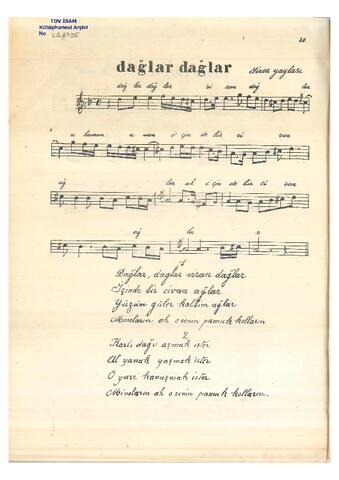 TDV İSAM
Kütüphanesi Arşivi
No
dağlar dağlar
dağ lar dağ lar
dağ lar
a man a man i çin de bir ci van
ağ lar ah i çin de bir ci van
ağ la r
1
Dağlar, dağlar viran dağlar
İçinde bir civan ağlar
Yüzüm güler kalbim ağlar
Minoların ah o senin pamuk kolların
2
Karlı dağı aşmak ister
Al yanak yaşmak ister
O yare kavuşmak ister
Minoların ah o senin pamuk kolların.